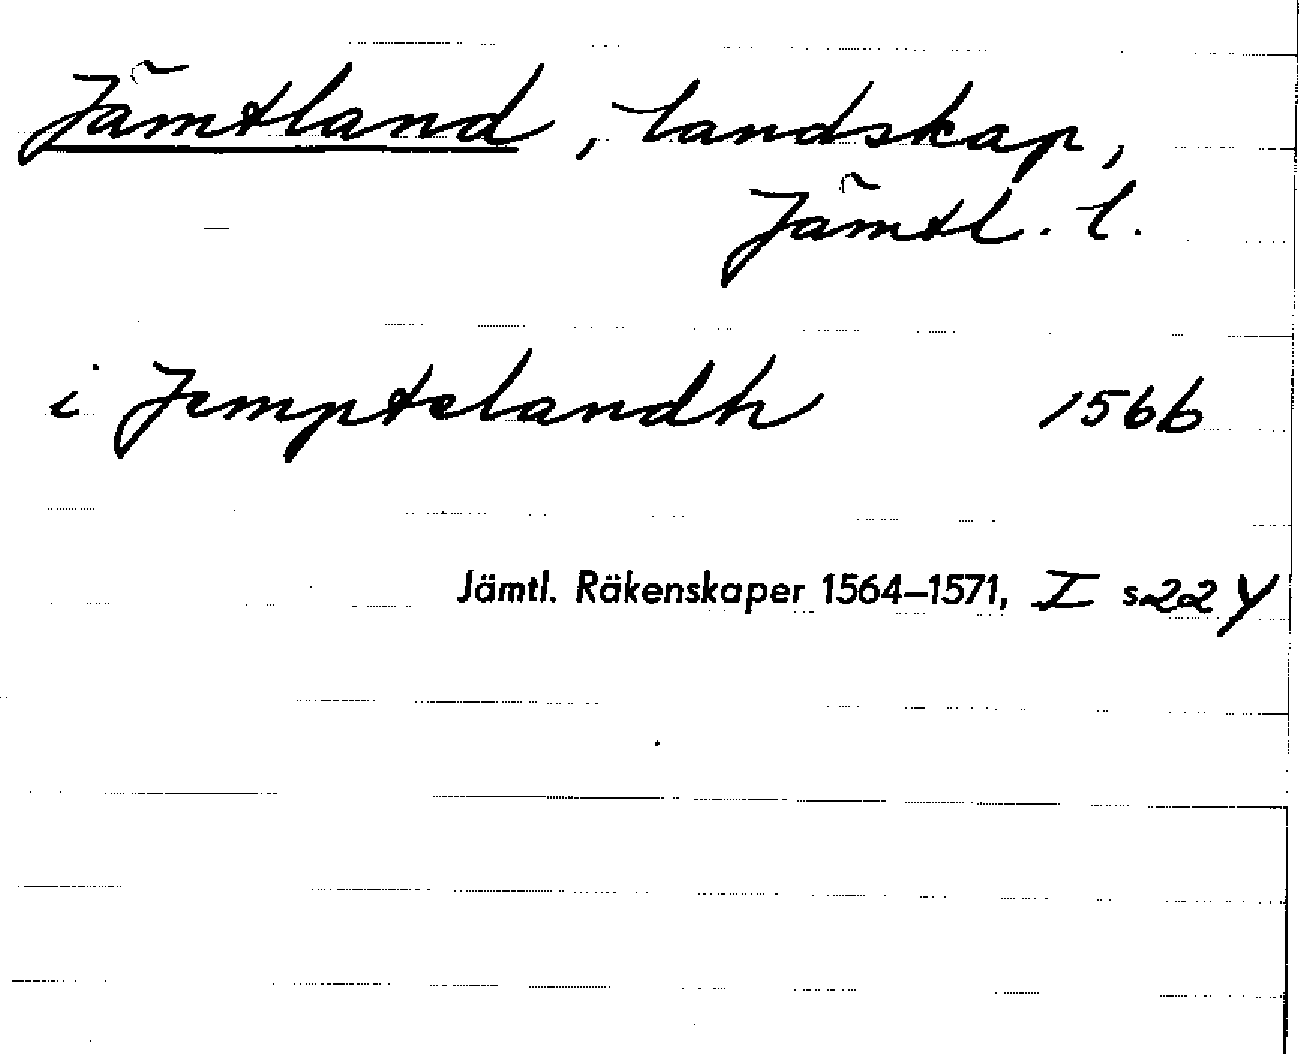 Jämtland, landskap,
Jämtl. l.
i Jemptelandh 1566
Jämtl. Räkenskaper 1564–1571, I s 22 y